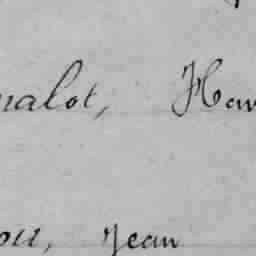 nalot, Hen
ou, Jean